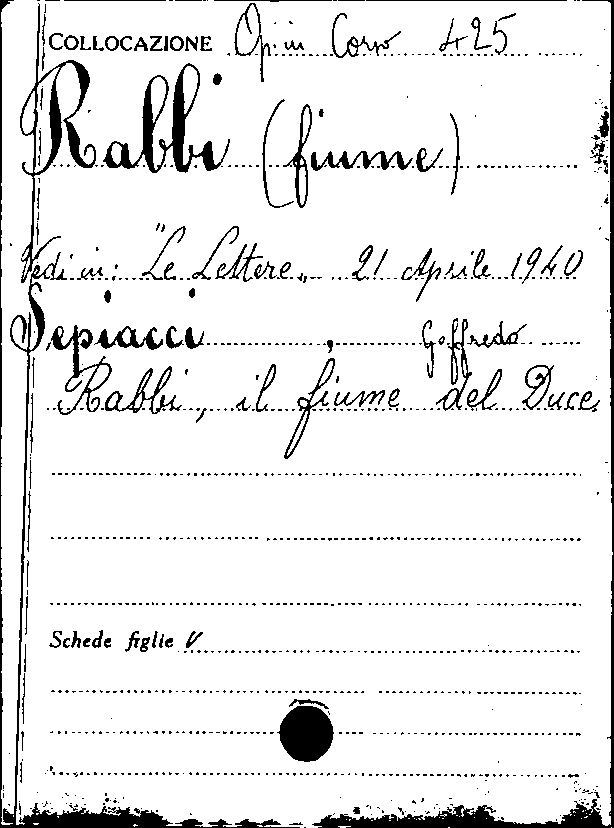 COLLOCAZIONE Op. in Corso 425
Rabbi (fiume)
Vedi in: "Le Lettere„ 21 Aprile 1940
Sepiacci, Goffredo
Rabbi, il fiume del Duce.
Schede figlie V